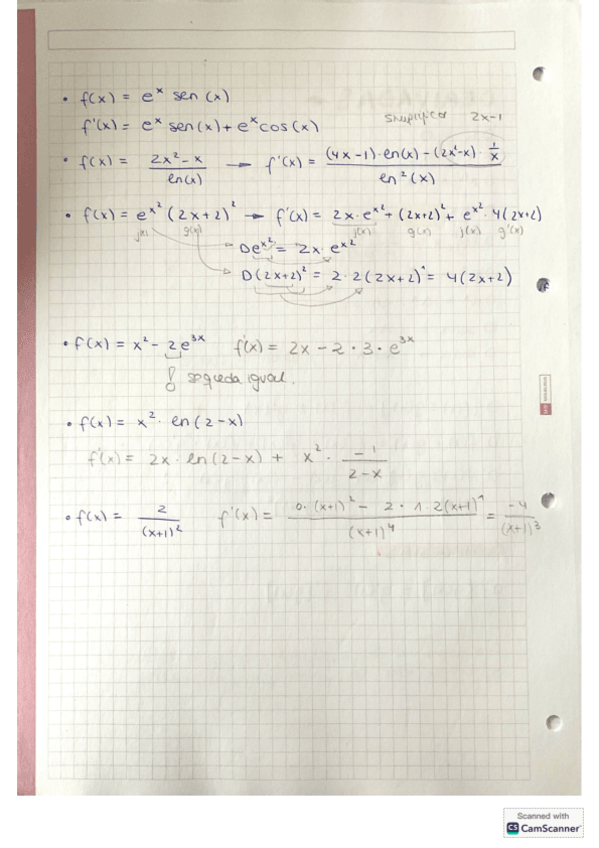 • f(x) = e^x sen (x)
f'(x) = e^x sen(x) + e^x cos(x)
simplificar 2x-1
• f(x) = (2x²-x)/(ln(x)) → f'(x) = ((4x-1)·ln(x) - (2x²-x)·1/x)/(ln²(x))
• f(x) = e^(x²) (2x+2)² → f'(x) = 2x·e^(x²) + (2x+2)² + e^(x²)·4(2x+2)
j(x) g(x) j(x) g(x) j(x) g'(x)
De^(x²) = 2x e^(x²)
D(2x+2)² = 2·2(2x+2)¹ = 4(2x+2)
• f(x) = x² - 2e^(3x) f'(x) = 2x - 2·3·e^(3x)
! se queda igual.
• f(x) = x²· ln(2-x)
f'(x) = 2x·ln(2-x) + x²·(-1)/(2-x)
• f(x) = 2/(x+1)² f'(x) = (0·(x+1)² - 2·1·2(x+1)¹)/(x+1)⁴ = -4/(x+1)³
Scanned with
CS CamScanner